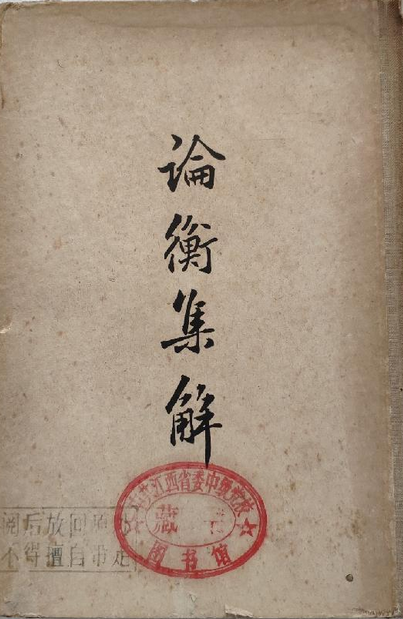 論衡集解
中共江西省委中级党校
藏书
图书馆
阅后放回原处
不得擅自带走